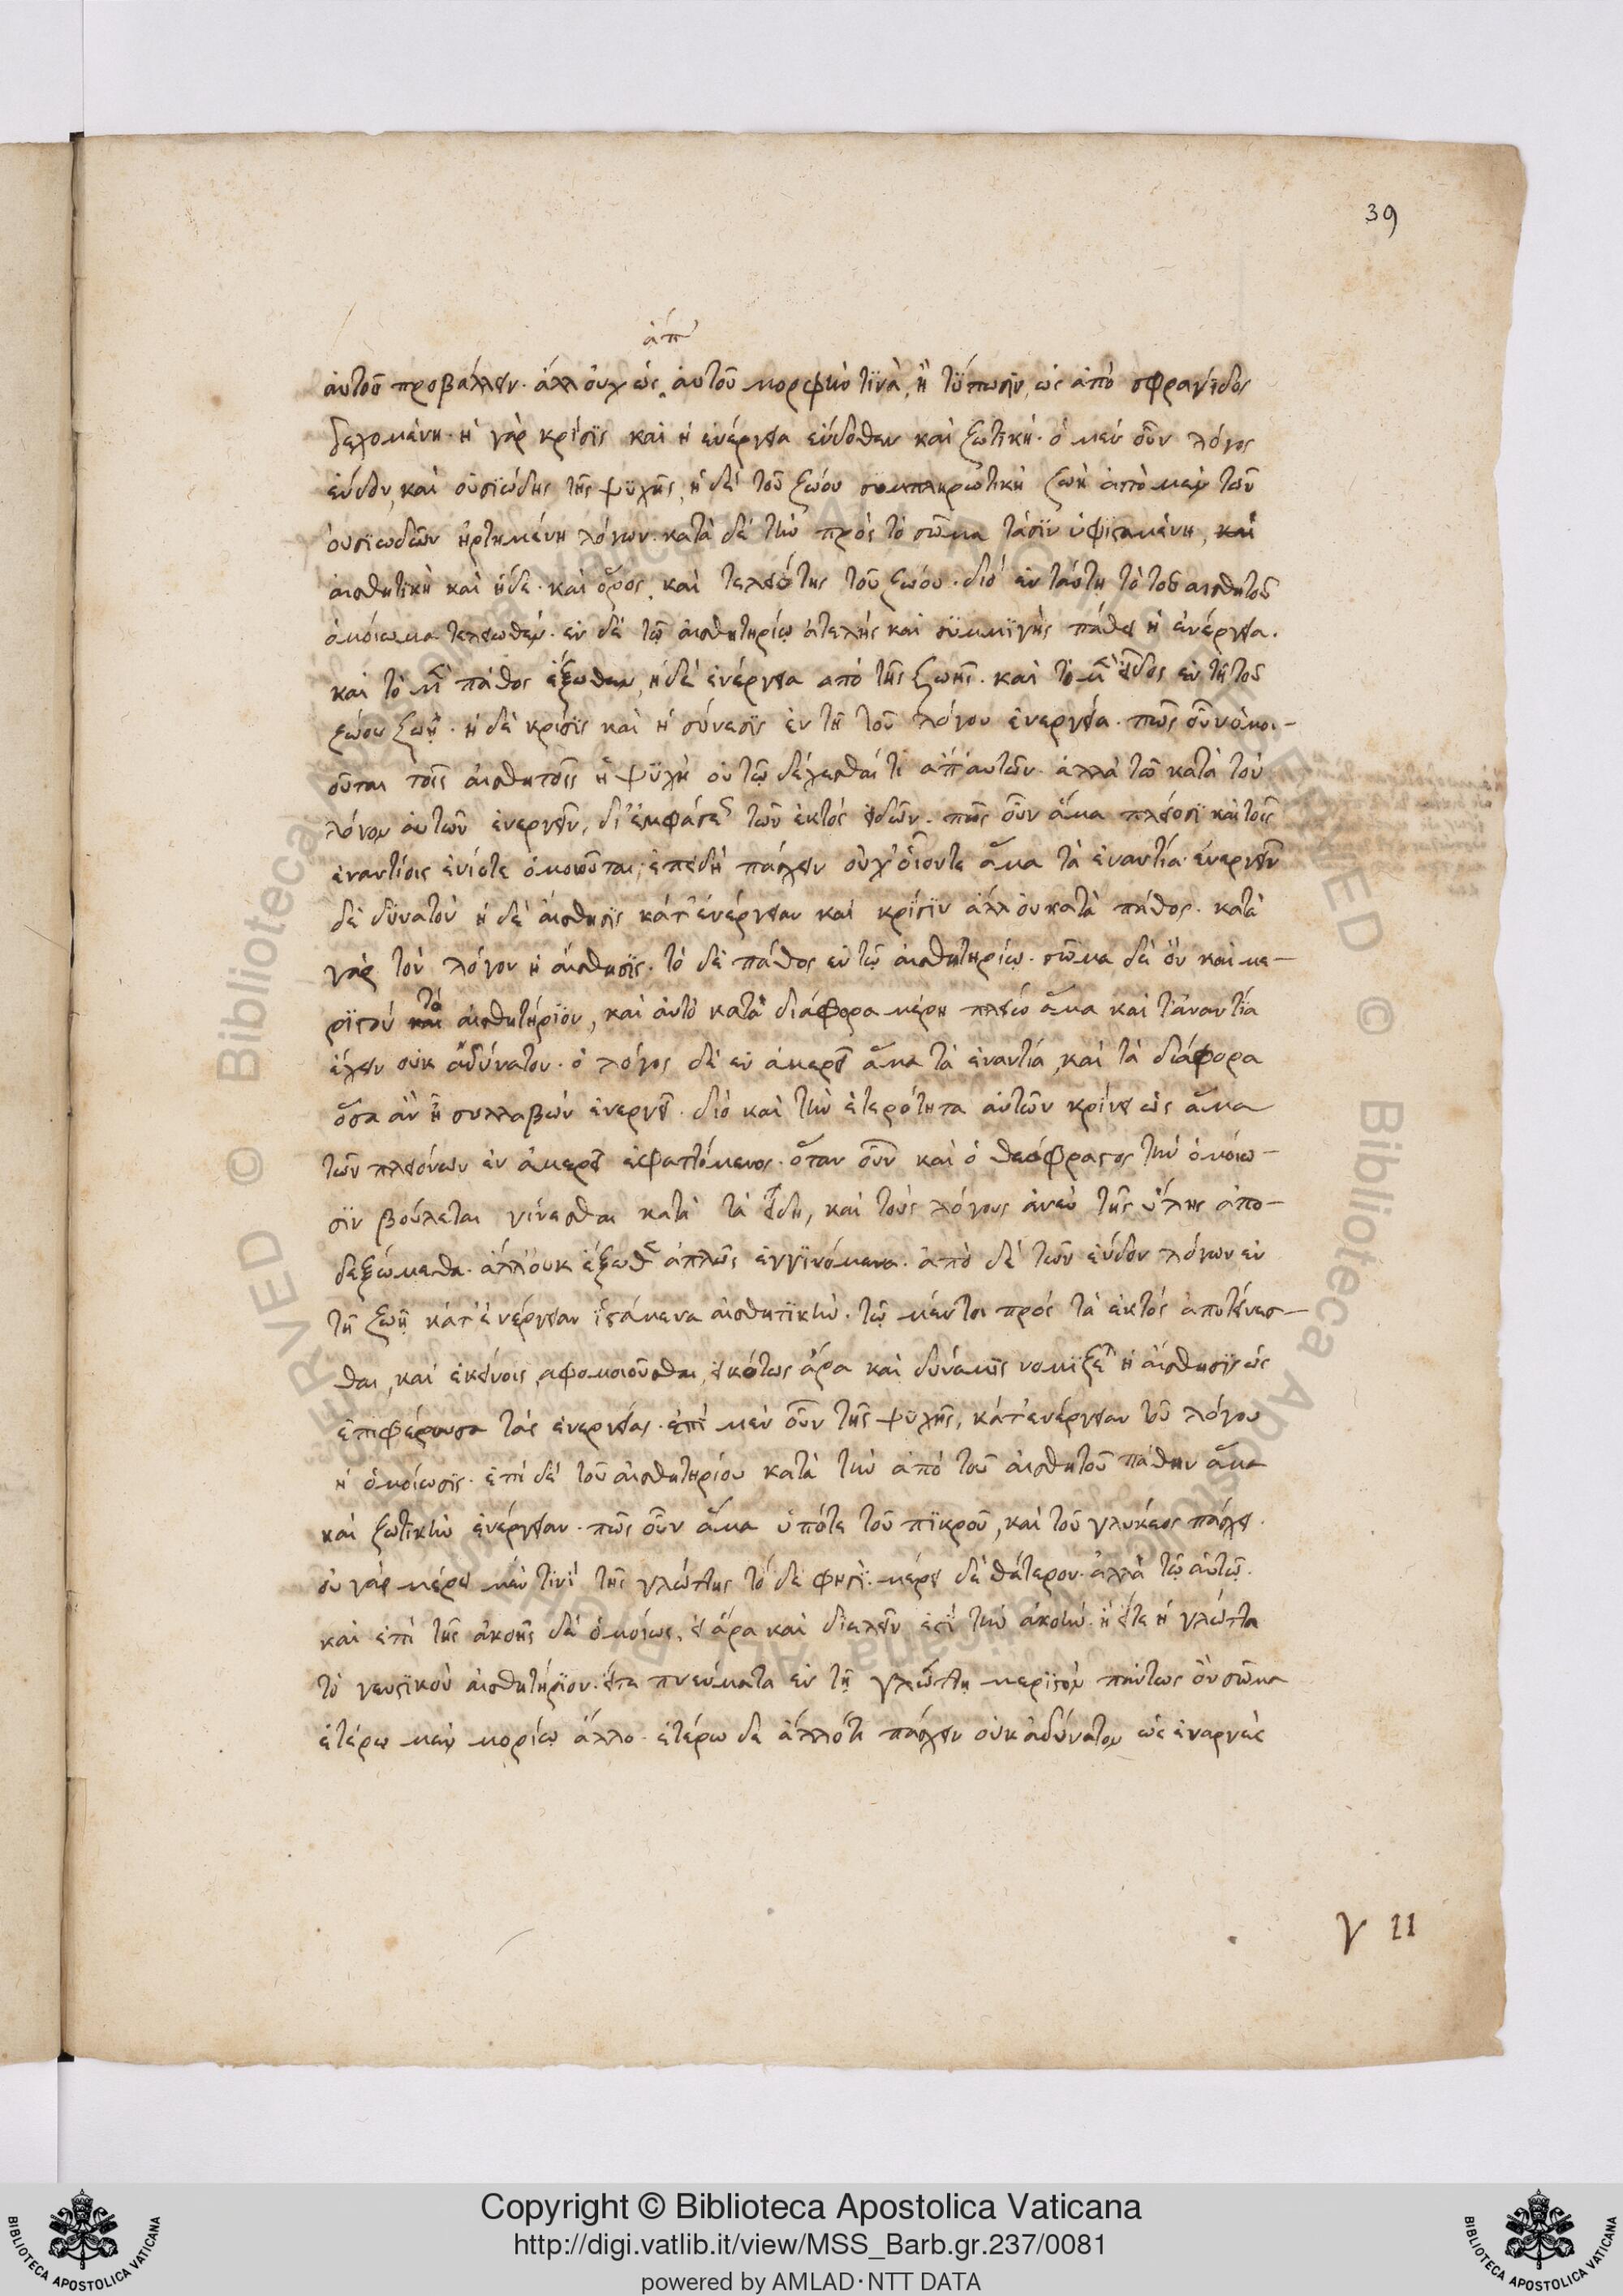 39
ἀπ'
ἀυτοῦ προβάλλειν· ἀλλ' ὀυχ ὡς ἀυτοῦ μορφὴν τινὰ, ἢ τύπωσϊν, ὡς ἀπὸ σφραγῖδος
δεχομένη· ἡ γὰρ κρίσϊς καὶ ἡ ἐνέργεια ἔνδοθεν καὶ ζωτικὴ· ὁ μὲν οὖν λόγος
ἔνδον, καὶ ὀυσϊώδης τῆς ψϋχῆς, ἡ δὲ τοῦ ζώου συμπληρωτικὴ ζωὴ ἀπὸ μὲν τῶν
ὀυσϊωδῶν ἠρτημένη λόγων· κατὰ δὲ τὴν πρὸς τὸ σῶμα τάσϊν ὑφϊσταμένη, καὶ
αισθητικὴ καὶ ἥδε· καὶ ὅρος, καὶ τελειότης τοῦ ζώου· διὸ ἐν ταύτη τὸ τοῦ αισθητοῦ
ὁμοίωμα τελειωθὲν· ἐν δὲ τῷ ἀισθητηρίῳ ἀτελὴς καὶ σϋμμϊγὴς πάθει ἡ ἐνέργεια.
καὶ τὸ μὲν πάθος ἔξωθεν, ἡ δὲ ἐνέργεια ἀπὸ τῆς ζωῆς· καὶ τὸ μὲν εἶδος ἐν τῇ τοῦ
ζώου ζωῇ· ἡ δὲ κρίσϊς καὶ ἡ σύνεσϊς ἐν τῇ τοῦ λόγου ἐνεργεία· πῶς οὖν ὁμοι-
οῦται τοῖς ἀισθητοῖς ἡ ψϋχὴ οὐ τῷ δέχεσθαί τι ἀπ' ἀυτῶν· ἀλλὰ τῷ κατὰ τὸν
λόγον ἀυτῶν ἐνεργεῖν, δι' ἐμφάσεως τῶν ἐκτὸς εἰδῶν· πῶς οὖν ἅμα πλείοσϊ καὶ τοῖς
ἐναντίοις ἐνίοτε ὁμοιοῦται; ἐπειδὴ πάσχειν οὐχ' οἷόντε ἅμα τὰ ἐναντία· ἐνεργεῖν
δὲ δϋνατὸν ἡ δὲ ἀίσθησϊς κατ' ἐνέργειαν καὶ κρίσϊν ἀλλ' ὀυ κατὰ πάθος· κατὰ
γὰρ τὸν λόγον ἡ ἀίσθησϊς· τὸ δὲ πάθος ἐν τῷ ἀισθητηρίῳ· σῶμα δὲ ὂν καὶ με-
ρϊστὸν τὸ αισθητήρϊον, καὶ ἀυτὸ κατὰ διάφορα μέρη πλείω ἅμα καὶ τἀναντία
ἔχειν οὐκ ἀδύνατον· ὁ λόγος δὲ ἐν ἀμερεῖ ἅμα τὰ ἐναντία, καὶ τὰ διάφορα
ὅσα ἂν ᾖ συλλαβὼν ἐνεργεῖ· διὸ καὶ τὴν ἑτερότητα ἀυτῶν κρίνει ὡς ἅμα
τῶν πλειόνων ἐν ἀμερεῖ ἐφαπτόμενος· ὅταν οὖν καὶ ὁ θεόφραστος τὴν ὁμοίω-
σϊν βούλεται γίνεσθαι κατὰ τὰ εἴδη, καὶ τοὺς λόγους ἄνευ τῆς ὕλης ἀπο-
δεξώμεθα· ἀλλ' ὀυκ ἔξωθεν ἁπλῶς ἐγγϊνόμενα· ἀπὸ δὲ τῶν ἔνδον λόγων ἐν
τῇ ζωῇ κατ' ἐνέργειαν ϊστάμενα ἀισθητϊκὴν· τῷ μέντοι πρὸς τὰ ἐκτὸς ἀποτείνεσ-
θαι, καὶ ἐκείνοις ἀφομοιοῦσθαι, εἰκότως ἄρα καὶ δυνάμεις νομίζει ἡ ἀίσθησϊς ὡς
ἐπιφέρουσα τὰς ἐνεργείας· ἐπὶ μὲν οὖν τῆς ψϋχῆς, κατ' ἐνέργειαν τοῦ λόγου
ἡ ὁμοίωσϊς· ἐπὶ δὲ τοῦ ἀισθητηρίου κατὰ τὴν ἀπὸ τοῦ ἀισθητοῦ πάθην ἅμα
καὶ ζωτικὴν ἐνέργειαν· πῶς οὖν ἅμα ὑπότε τοῦ πϊκροῦ, καὶ τοῦ γλυκέος πάσχει·
οὐ γὰρ μέρει μέν τϊνϊ τῆς γλώττης τὸ δὲ φησϊ· μέρει δὲ θάτερον· ἀλλὰ τῷ ἀυτῷ.
καὶ ἐπὶ τῆς ἀκοῆς δὲ ὁμοίως, εἰ ἄρα καὶ διελεῖν ἐστὶ τὴν ἀκοὴν· ἢ εἴτε ἡ γλῶττα
τὸ γευστικὸν ἀισθητήρϊον· εἴτε πνεύματα ἐν τῇ γλώττη μερϊστὸν πάντως ὂν σῶμα
ἑτέρω μὲν μορίῳ ἄλλο· ἑτέρω δὲ ἄλλότι πάσχειν οὐκ ἀδύνατον ὡς ἐναργὲς
γ 11
Copyright © Biblioteca Apostolica Vaticana
http://digi.vatlib.it/view/MSS_Barb.gr.237/0081
powered by AMLAD·NTT DATA
BIBLIOTECA APOSTOLICA VATICANA
BIBLIOTECA APOSTOLICA VATICANA